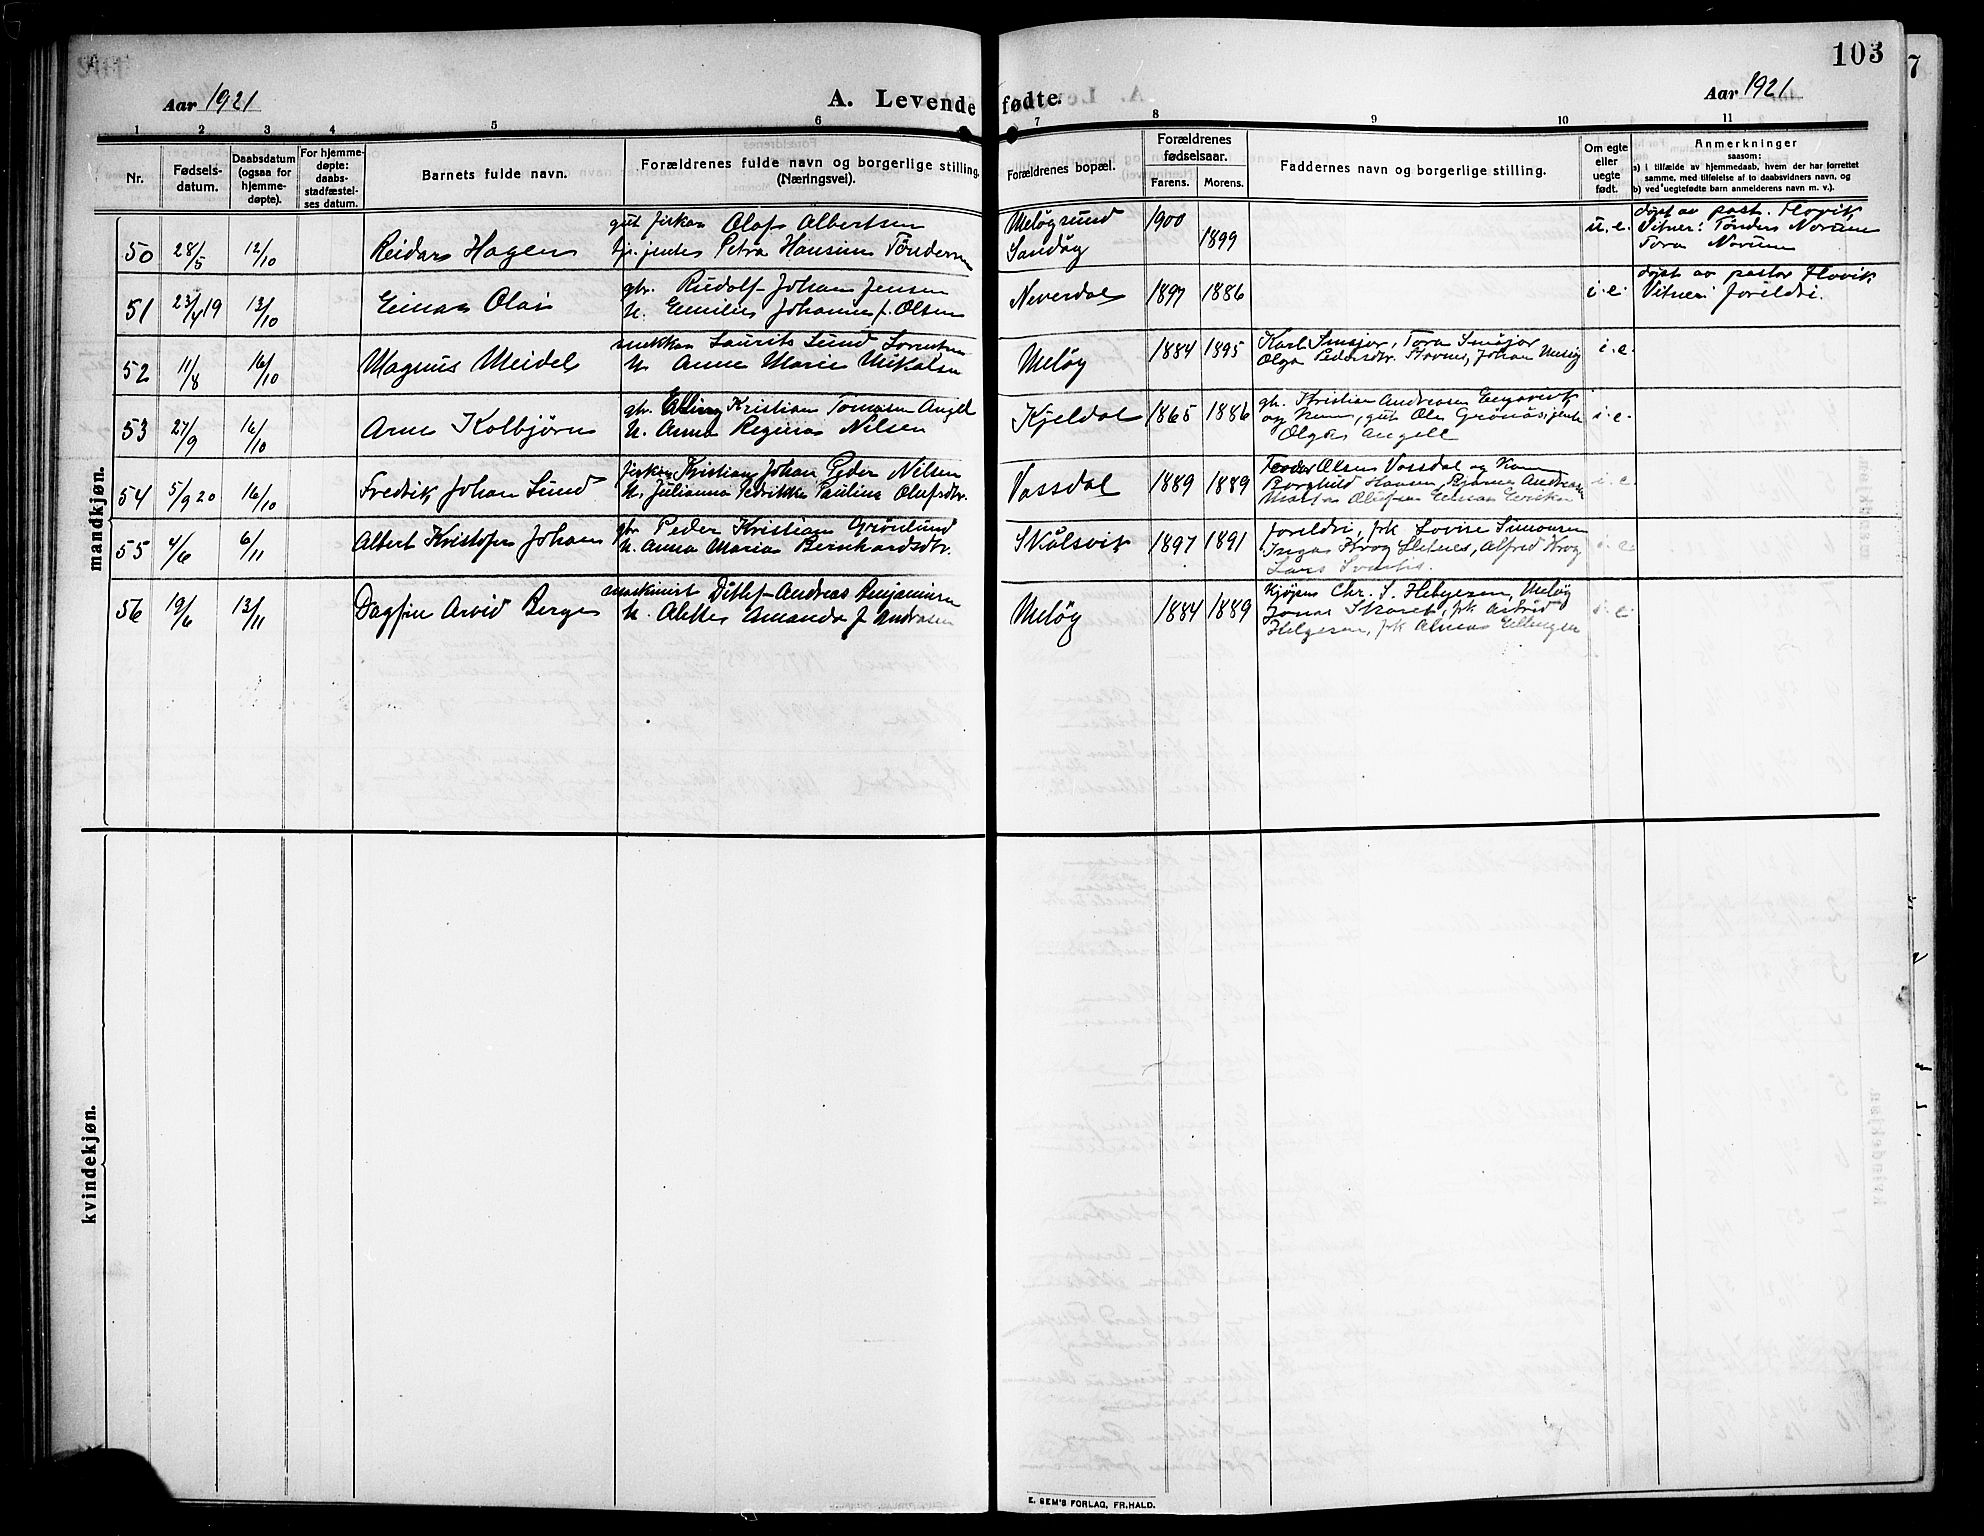 103
7
Aar 1921
A. Levende fødte.
Aar 1921
1 2 3 4 5 6 7 8 9 10 11
Nr.
Fødsels-
datum.
Daabsdatum
(ogsaa for
hjemme-
døpte).
For hjemme-
døpte:
daabs-
stadfæstel-
ses datum.
Barnets fulde navn.
Forældrenes fulde navn og borgerlige stilling.
(Næringsvei).
Forældrenes bopæl.
Forældrenes
fødselsaar.
Farens. Morens.
Faddernes navn og borgerlige stilling.
Om egte
eller
uegte
født.
Anmerkninger
saasom:
a) i tilfælde av hjemmedaab, hvem der har forrettet
samme, med tilføielse af to daabsvidners navn, og
b) ved uegtefødte barn anmelderens navn m. v.).
mandkjøn.
50 28/5 12/10 Reidar Hagen
gut fisker Olaf Albertsen
tj. jente Petra Hansine Tønders
Meløysund
Sandøy
1900 1899 u. e.
døpt av past. Hovik
Vitner: Tønders Norum
Tora Norum
51 23/4 19 13/10 Einar Olai
gbr. Rudolf Johan Jensen
h. Emilie Johanne f. Olsen
Neverdal 1897 1886 i. e.
døpt av pastor Hovik
Vitner: foreldre.
52 11/8 16/10 Magnus Meidel
snekker Laurits Lund Lorentsen
h. Anne Marie Mikalsen
Meløy 1884 1895
Karl Smsjor, Tora Smsjor
Olga Pedersdtr. , Johan
i. e.
53 27/9 16/10 Arne Kolbjørn
gbr. Elling Kristian Tomasen Angel
h. Anna Regina Nilsen
Kjeldal 1865 1886
gb. Kristian Andreasen Engavik
og kone, gut Ole Grønås, jente
Olga Angell
i. e.
54 5/9 20 16/10 Fredrik Johan Lund
fisker Kristian Johan Peder Nilsen
h. Julianna Fredrikke Pauline Olufsdtr.
Vassdal 1889 1889
Olsen Vassdal og kone
Borghild Hansen, Bjarne Andreasen
Marta Olufsen Einar Eriksen
i. e.
55 4/6 6/11 Albert Kristofer Johan
gbr. Peder Kristian Grønlund
h. Anna Maria Bernhardsdtr.
Skålsvik 1897 1891
foreldre, frk Lovise Simonsen
Inga Krog Sletnes, Alfred Krog
Lars
i. e.
56 19/6 13/11 Dagfin Arvid Berge
maskinist Ditlef Andreas Benjaminsen
h. Alette Amanda f. Andrasen
Meløy 1884 1889
Kjøpm Chr. S. Helgesen, Meløy
Jonas Skaret, frk Astrid
Helgesen, frk Alma Ellingsen
i. e.
kvindekjøn.
E. SEM'S FORLAG, FR.HALD.